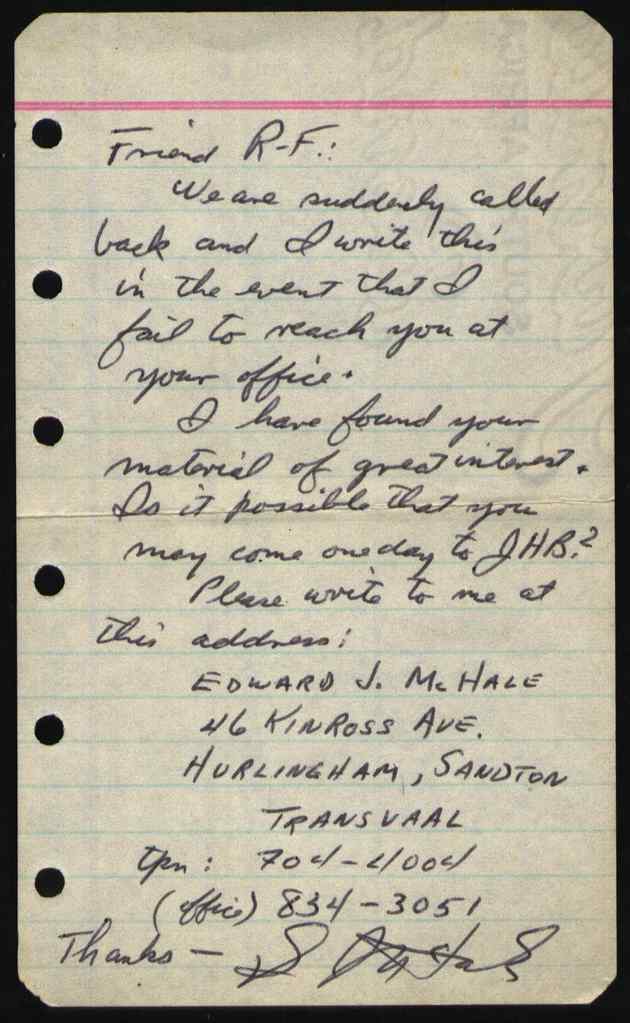 Friend R-F.:
We are suddenly called
back and I write this
in the event that I
fail to reach you at
your office.
I have found your
material of great interest.
Is it possible that you
may come one day to JHB.?
Please write to me at
this address:
EDWARD J. McHALE
46 KINROSS AVE.
HURLINGHAM, SANDTON
TRANSVAAL
tpn: 704-4004
(office) 834-3051
Thanks —